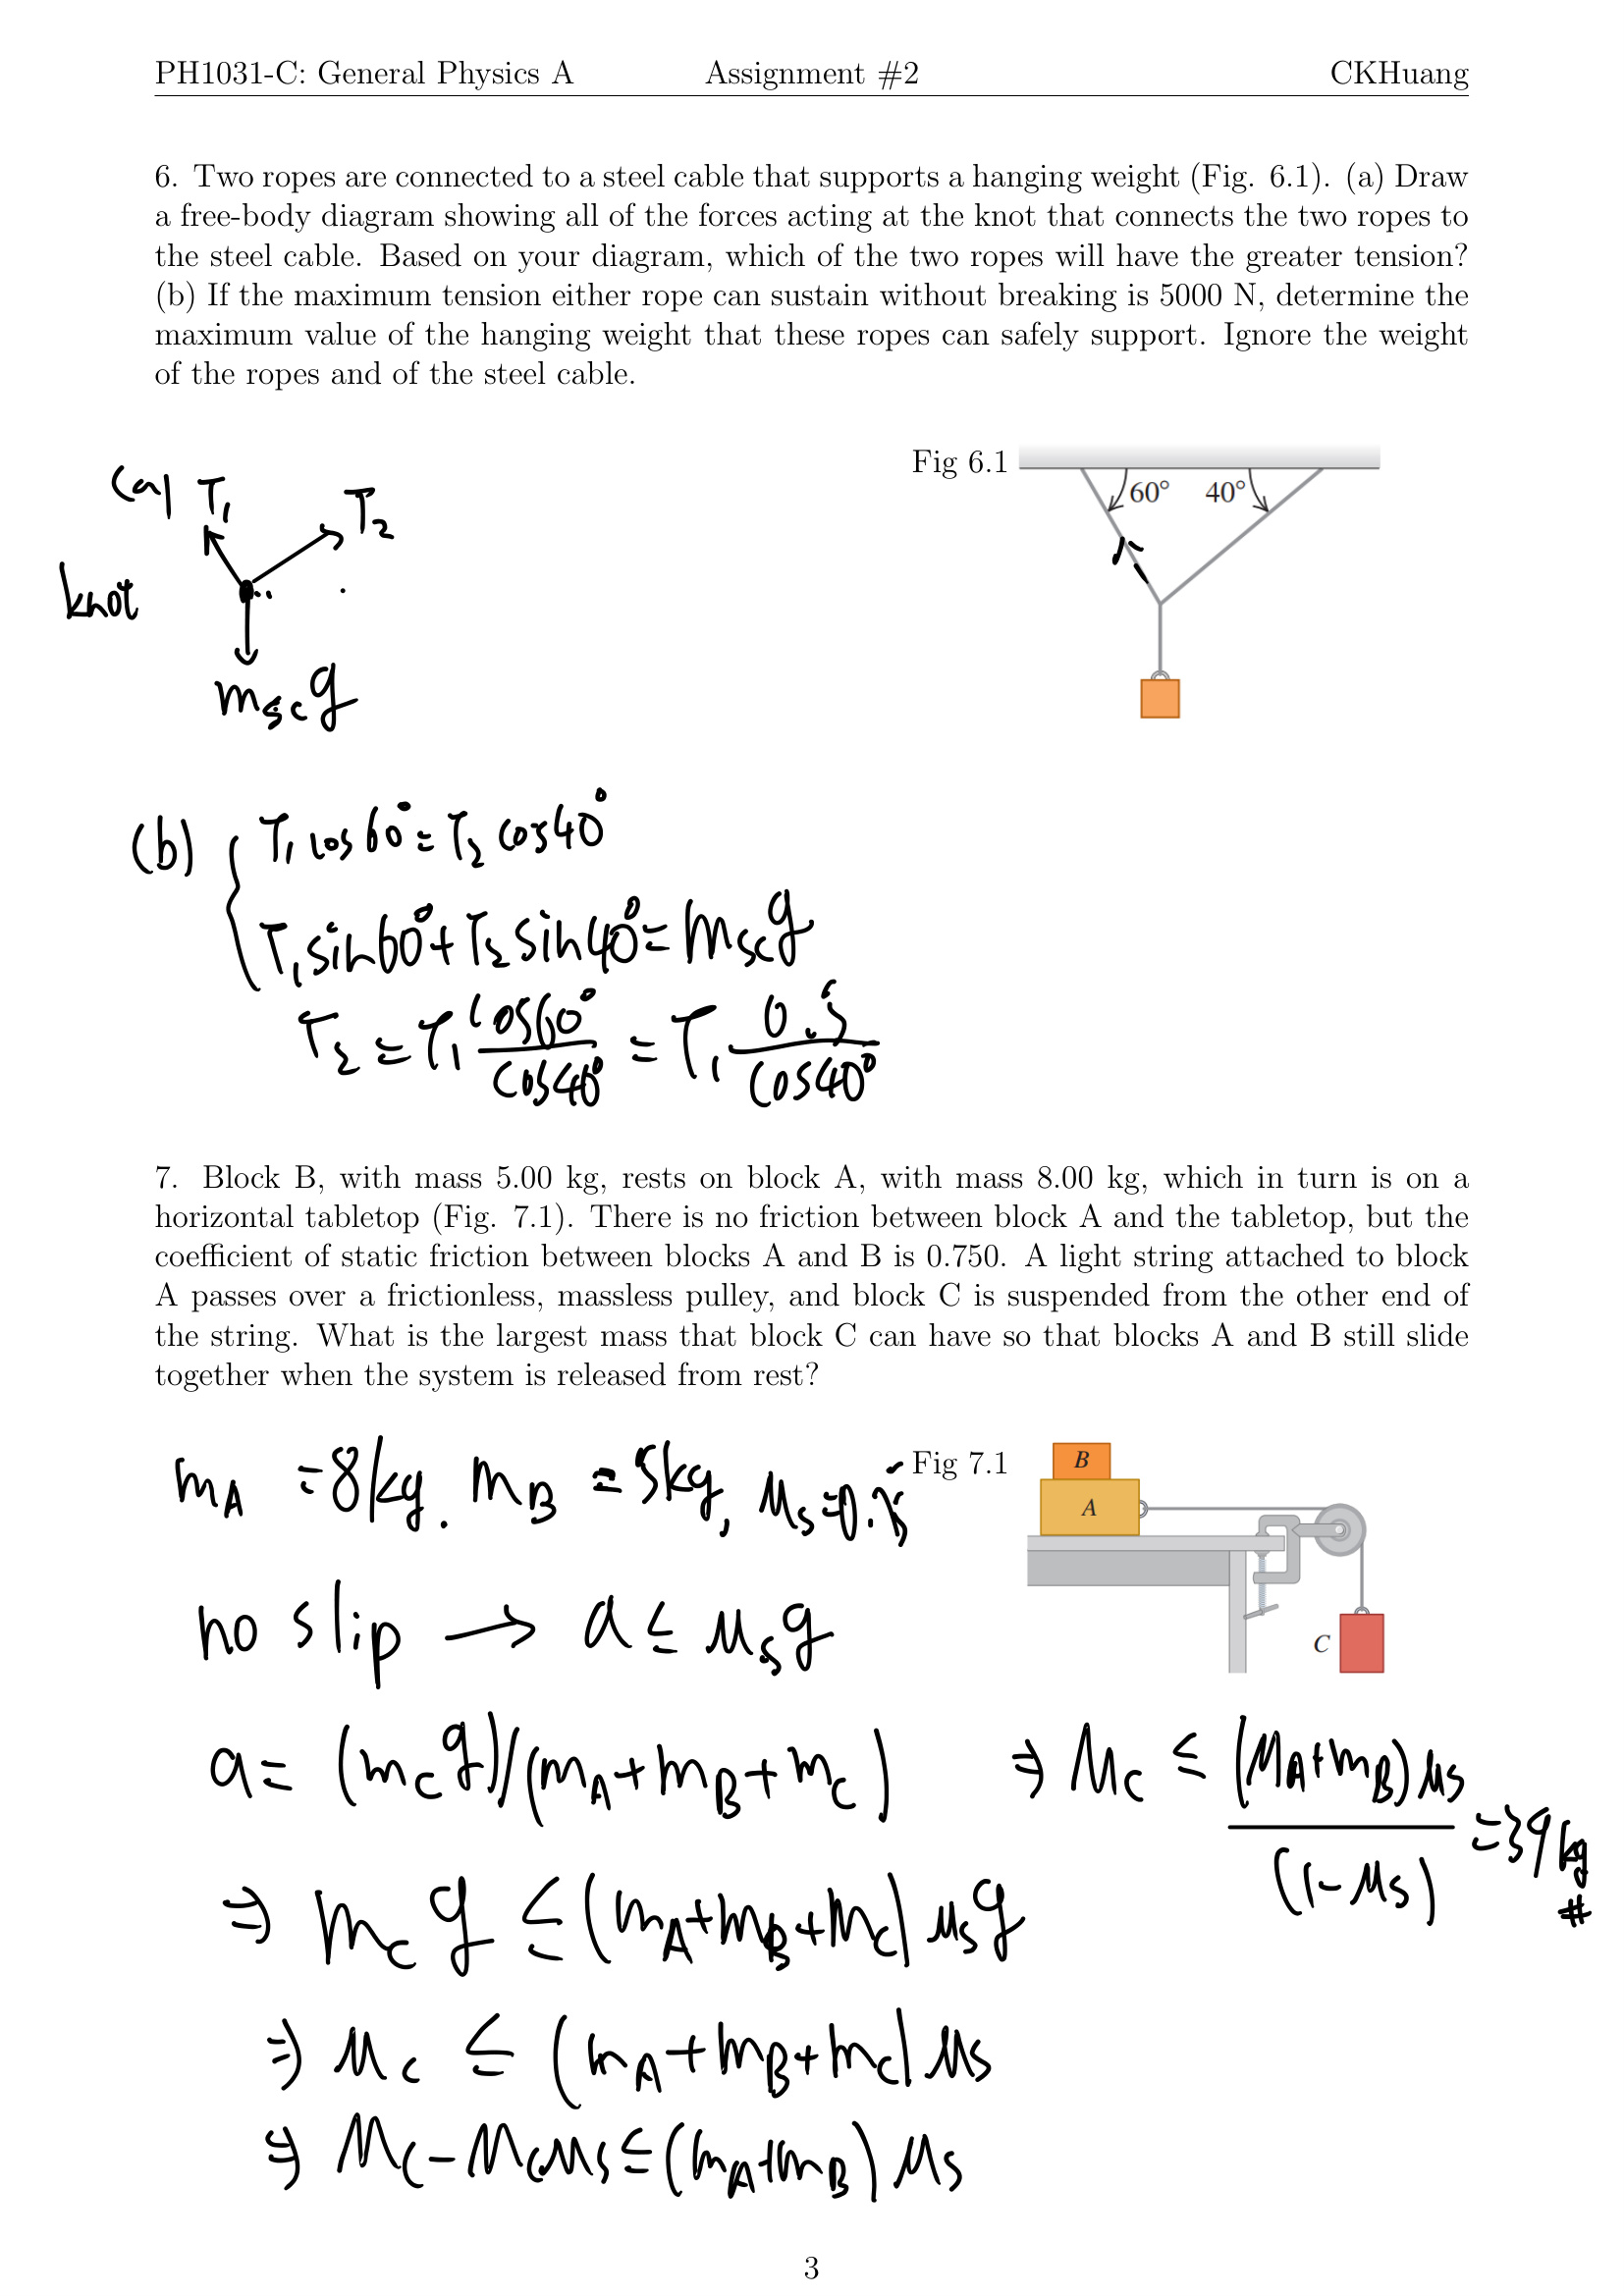 PH1031-C: General Physics A Assignment #2 CKHuang
6. Two ropes are connected to a steel cable that supports a hanging weight (Fig. 6.1). (a) Draw
a free-body diagram showing all of the forces acting at the knot that connects the two ropes to
the steel cable. Based on your diagram, which of the two ropes will have the greater tension?
(b) If the maximum tension either rope can sustain without breaking is 5000 N, determine the
maximum value of the hanging weight that these ropes can safely support. Ignore the weight
of the ropes and of the steel cable.
Fig 6.1
60° 40°
(a) T₁ T₂
knot
m_sc g
(b) { T₁ cos60° = T₂ cos40°
T₁ sin60° + T₂ sin40° = m_sc g
T₂ = T₁ cos60°/cos40° = T₁ 0.5/cos40°
7. Block B, with mass 5.00 kg, rests on block A, with mass 8.00 kg, which in turn is on a
horizontal tabletop (Fig. 7.1). There is no friction between block A and the tabletop, but the
coefficient of static friction between blocks A and B is 0.750. A light string attached to block
A passes over a frictionless, massless pulley, and block C is suspended from the other end of
the string. What is the largest mass that block C can have so that blocks A and B still slide
together when the system is released from rest?
Fig 7.1
B
A
C
m_A = 8kg. m_B = 5kg, μ_s =
no slip → a ≤ μ_s g
a = (m_C g)/(m_A + m_B + m_C)
⇒ m_C g ≤ (m_A + m_B + m_C) μ_s g
⇒ m_C ≤ (m_A + m_B + m_C) μ_s
⇒ m_C - m_C μ_s ≤ (m_A + m_B) μ_s
⇒ m_C ≤ (m_A + m_B) μ_s / (1 - μ_s) = 39 kg #
3